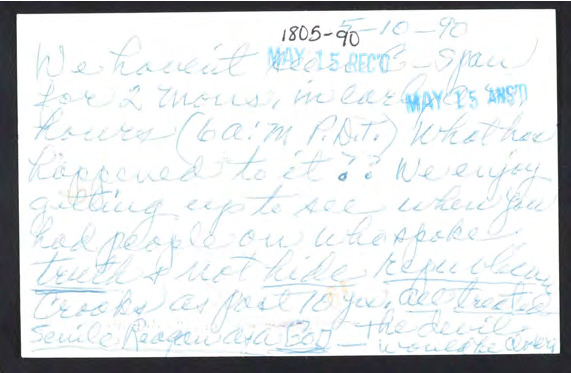 1805-90 5-10-90
We haven't C-Span
MAY 15 REC'D
for 2 mons, in early
MAY 15 ANS'D
hours (6 a.m P.D.T.) What has
happened to it?? We enjoy
getting up to see when you
had people on who spoke
truth & not hide
Crooks as past 10 yrs,
Senile Reagan as a God — the devil
would be